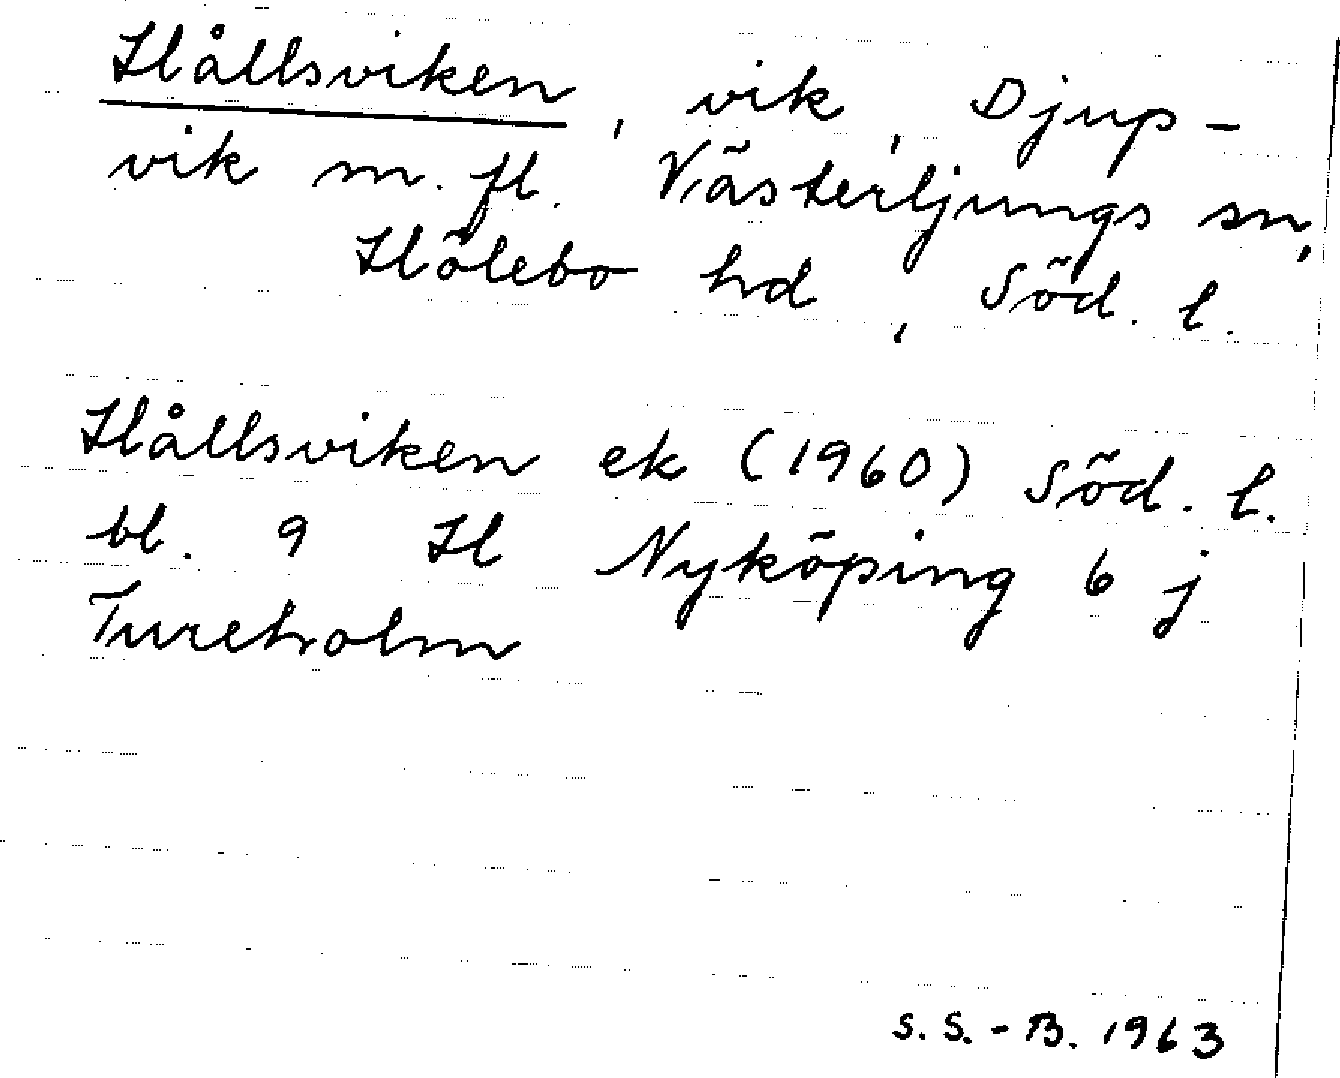 Hållsviken, vik, Djup-
vik m. fl. Västerljungs sn,
Hölebo hd, Söd. l.
Hållsviken ek (1960) Söd. l.
bl. 9 H Nyköping 6 j
Tureholm
S. S.-B. 1963